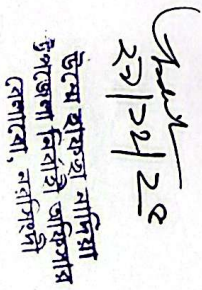 উম্মে হাফছা নাদিয়া
উপজেলা নির্বাহী অফিসার
বেলাবো, নরসিংদী